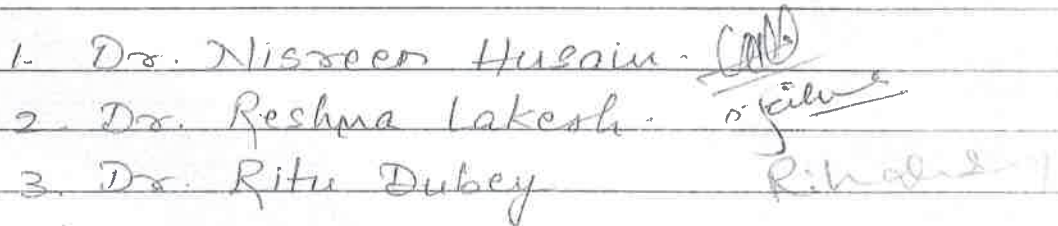 1. Dr. Nisreen Husain.
2. Dr. Reshma Lakesh.
3. Dr. Ritu Dubey